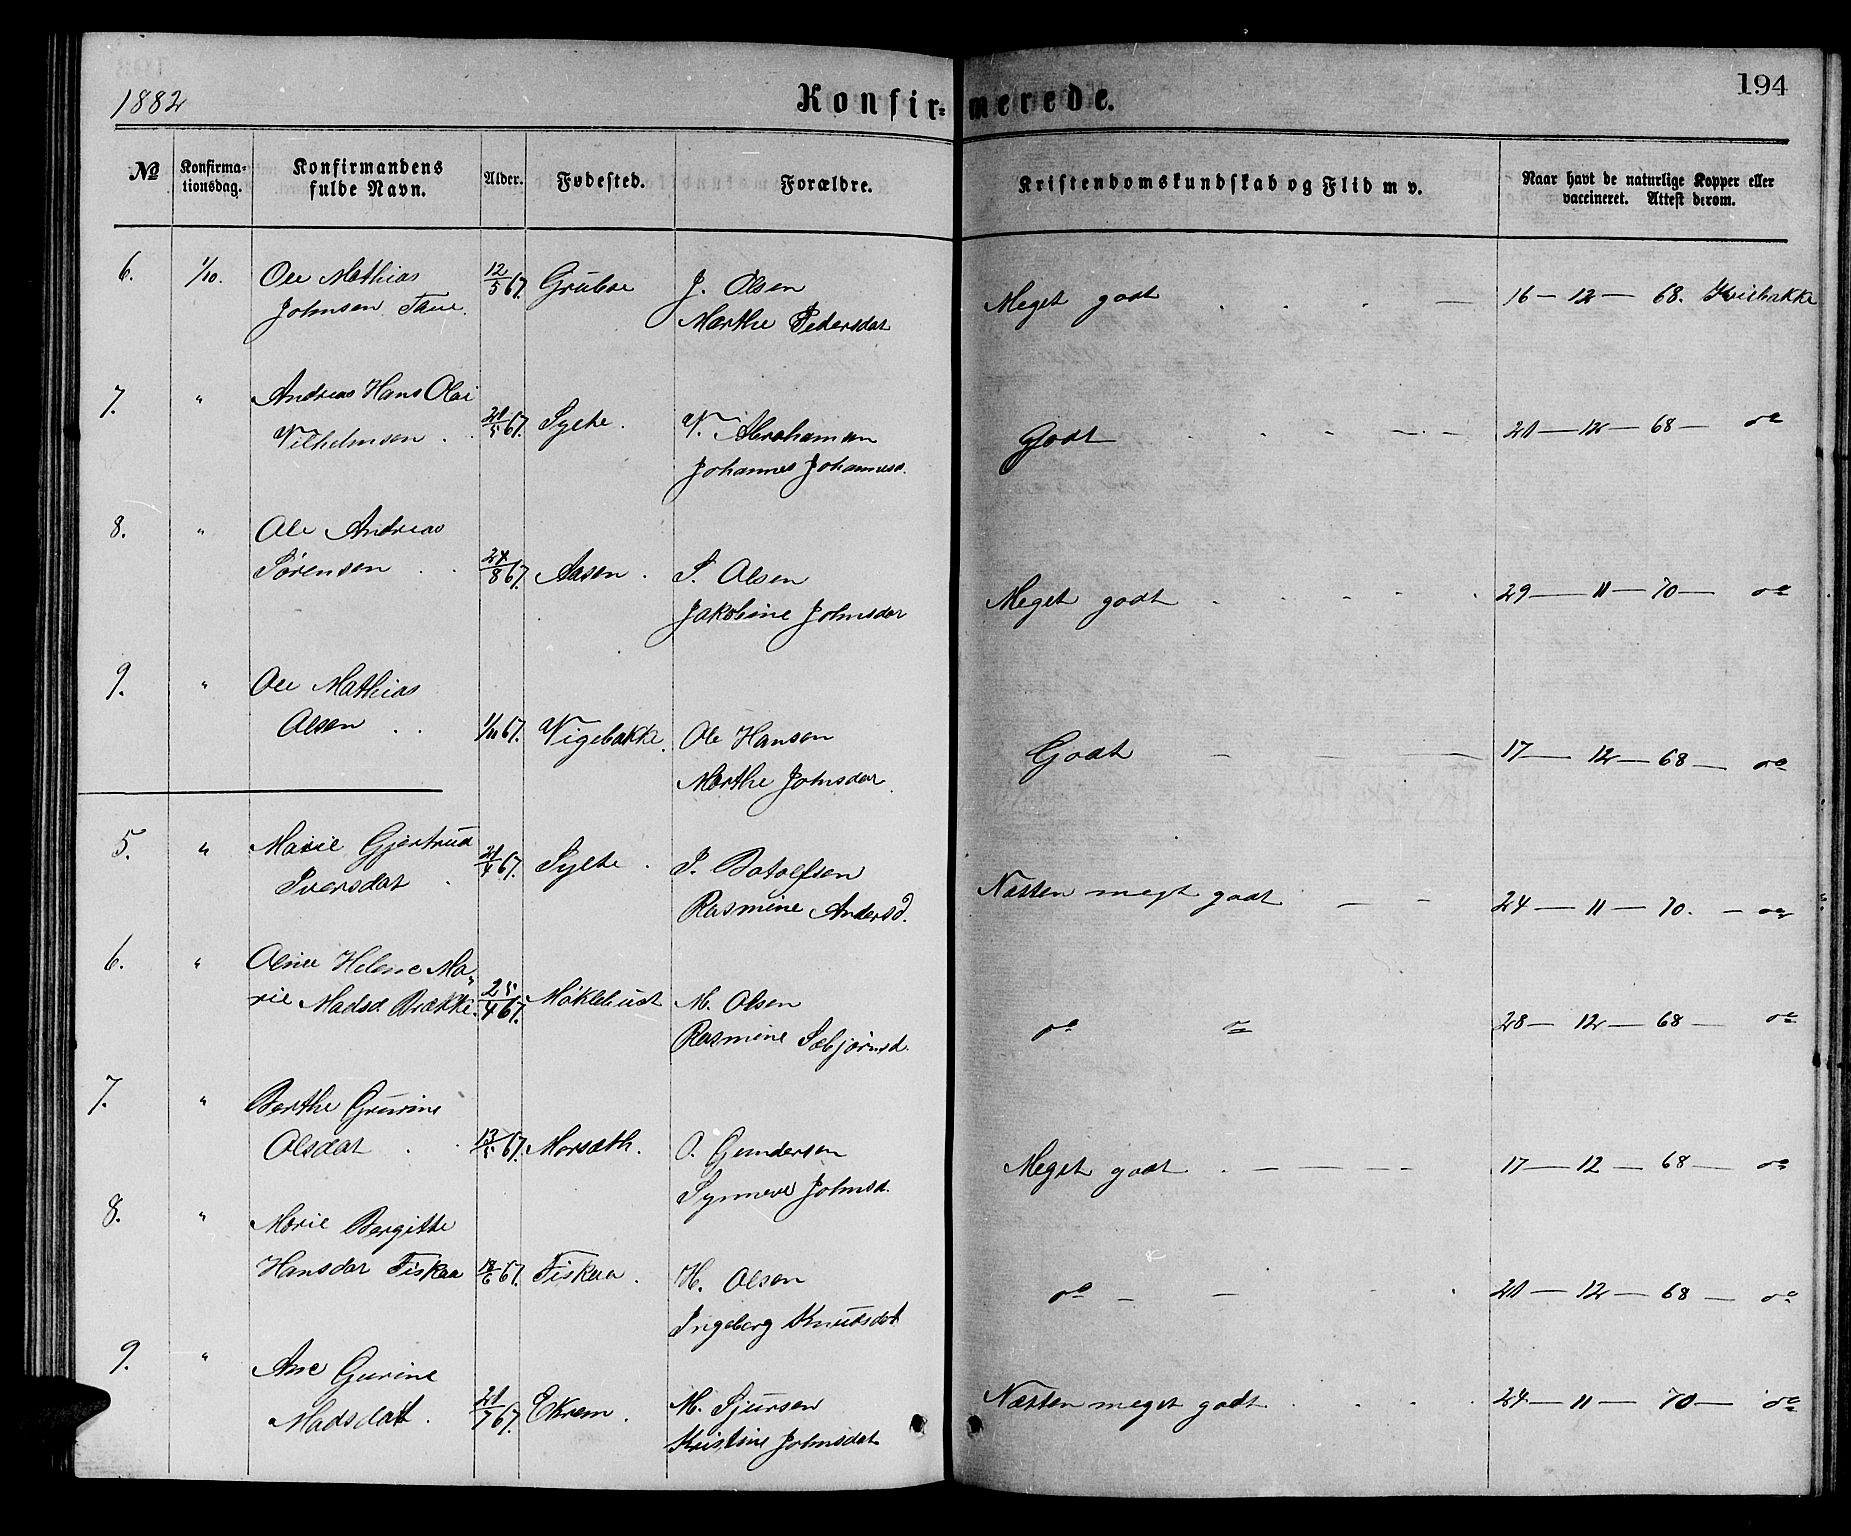 1882
Konfir=merede.
194
No
Konfirma-
tionsdag.
Konfirmandens
fulde Navn.
Alder.
Fødested.
Forældre.
Kristendomskundskab og Flid m v.
Naar havt de naturlige Kopper eller
vaccineret. Attest derom.
6. 1/10. Ole Mathias 12/5 67. J. Olsen
Johnsen Marthe Pedersdat
Meget godt 16 - 12 - 68.
7. " Andreas Hans Olai
Vilhelmsen . . 21/5 67. Sylte. V. Abrahamsen
Johannes Johannesd.
Godt 21 - 12 - 68 - do
8. " Ole Andreas
Sörensen . . 24/8 67. Aasen. S. Olsen
Jakobine Johnsdat
Meget godt 29 - 11 - 70 - do
9. " Ole Mathias
Olsen . . 1/11 67. Vigebakke. Ole Hansen
Marthe Johnsdat.
Godt 17 - 12 - 68 - do
5. " Marie Gjertrud
Iversdat . 21/4 67. Sylte. I. Botolfsen
Rasmine Andersd.
Næsten meget godt 24 - 11 - 70. - do
6. " Oline Helene Ma-
rie Madsd. Brække. 25/4 67. Möklebust M. Olsen
Rasmine Sæbjörnsd.
do do 28 - 12 - 68 - do
7. " Berthe Gurine
Olsdat . 13/5 67. Morsæth. O. Gundersen
Synneve Johnsd.
Meget godt 17 - 12 - 68 - do
8. " Marie Bergitte
Hansdat Fiskaa 18/6 67. Fiskaa. H. Olsen
Ingeborg Knudsdat
do 21 - 12 - 68 - do
9. " Ane Gurine
Madsdat. 21/7 67. Ekrem. M. Sjursen
Kristine Johnsdat
Næsten meget godt 24 - 11 - 70 - do